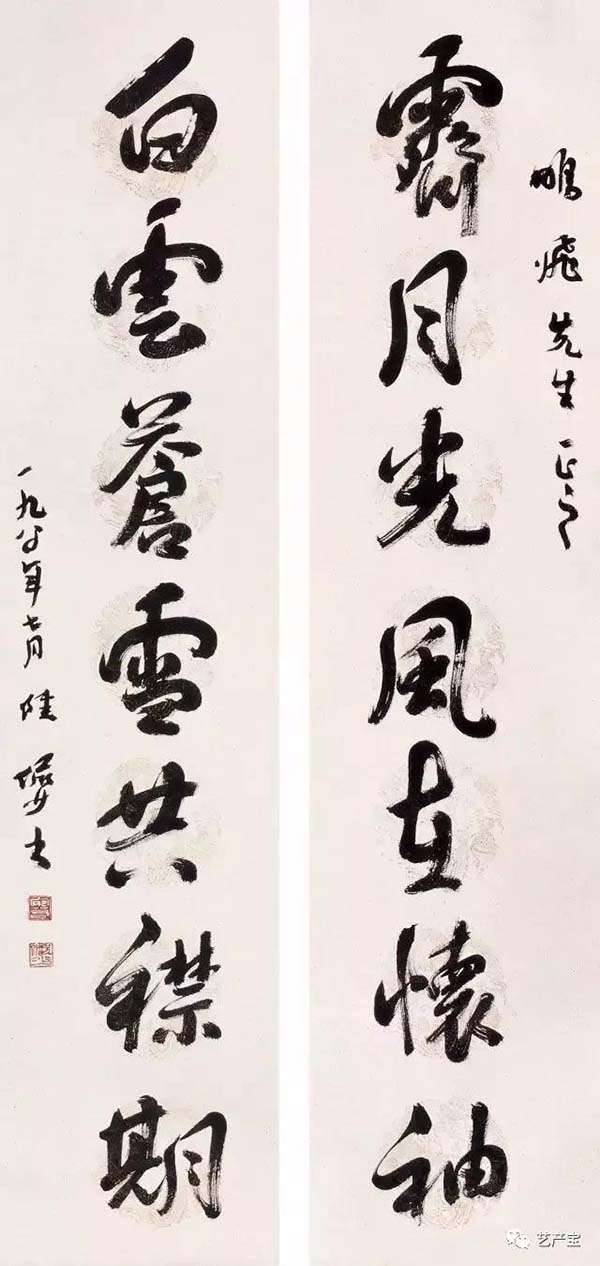 鵬飛先生正之
霽月光風在懷袖
白雲蒼雪共襟期
一九八〇年七月 陸儼少
艺产宝